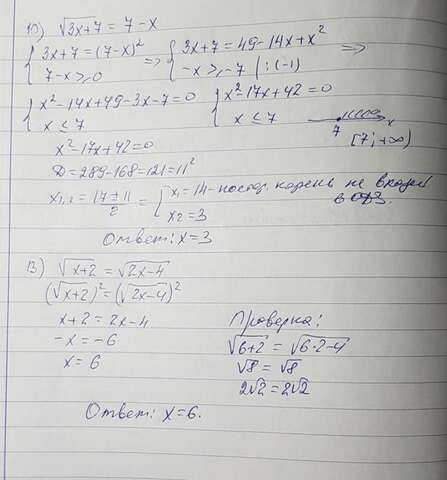 10) √3x+7 = 7-x
{ 3x+7 = (7-x)² => { 3x+7 = 49-14x+x² =>
7-x ≥ 0 -x ≥ -7 | :(-1)
{ x²-14x+49-3x-7=0 { x²-17x+42=0
x ≤ 7 x ≤ 7 7 x
[7; +∞)
x²-17x+42=0
D=289-168=121=11²
x₁,₂ = (17±11)/2 = [ x₁=14 - постор. корень не входит
x₂=3 в ОДЗ.
Ответ: x=3
В) √x+2 = √2x-4
(√x+2)² = (√2x-4)²
x+2 = 2x-4
-x = -6
x = 6
Проверка:
√6+2 = √6·2-4
√8 = √8
2√2 = 2√2
Ответ: x=6.